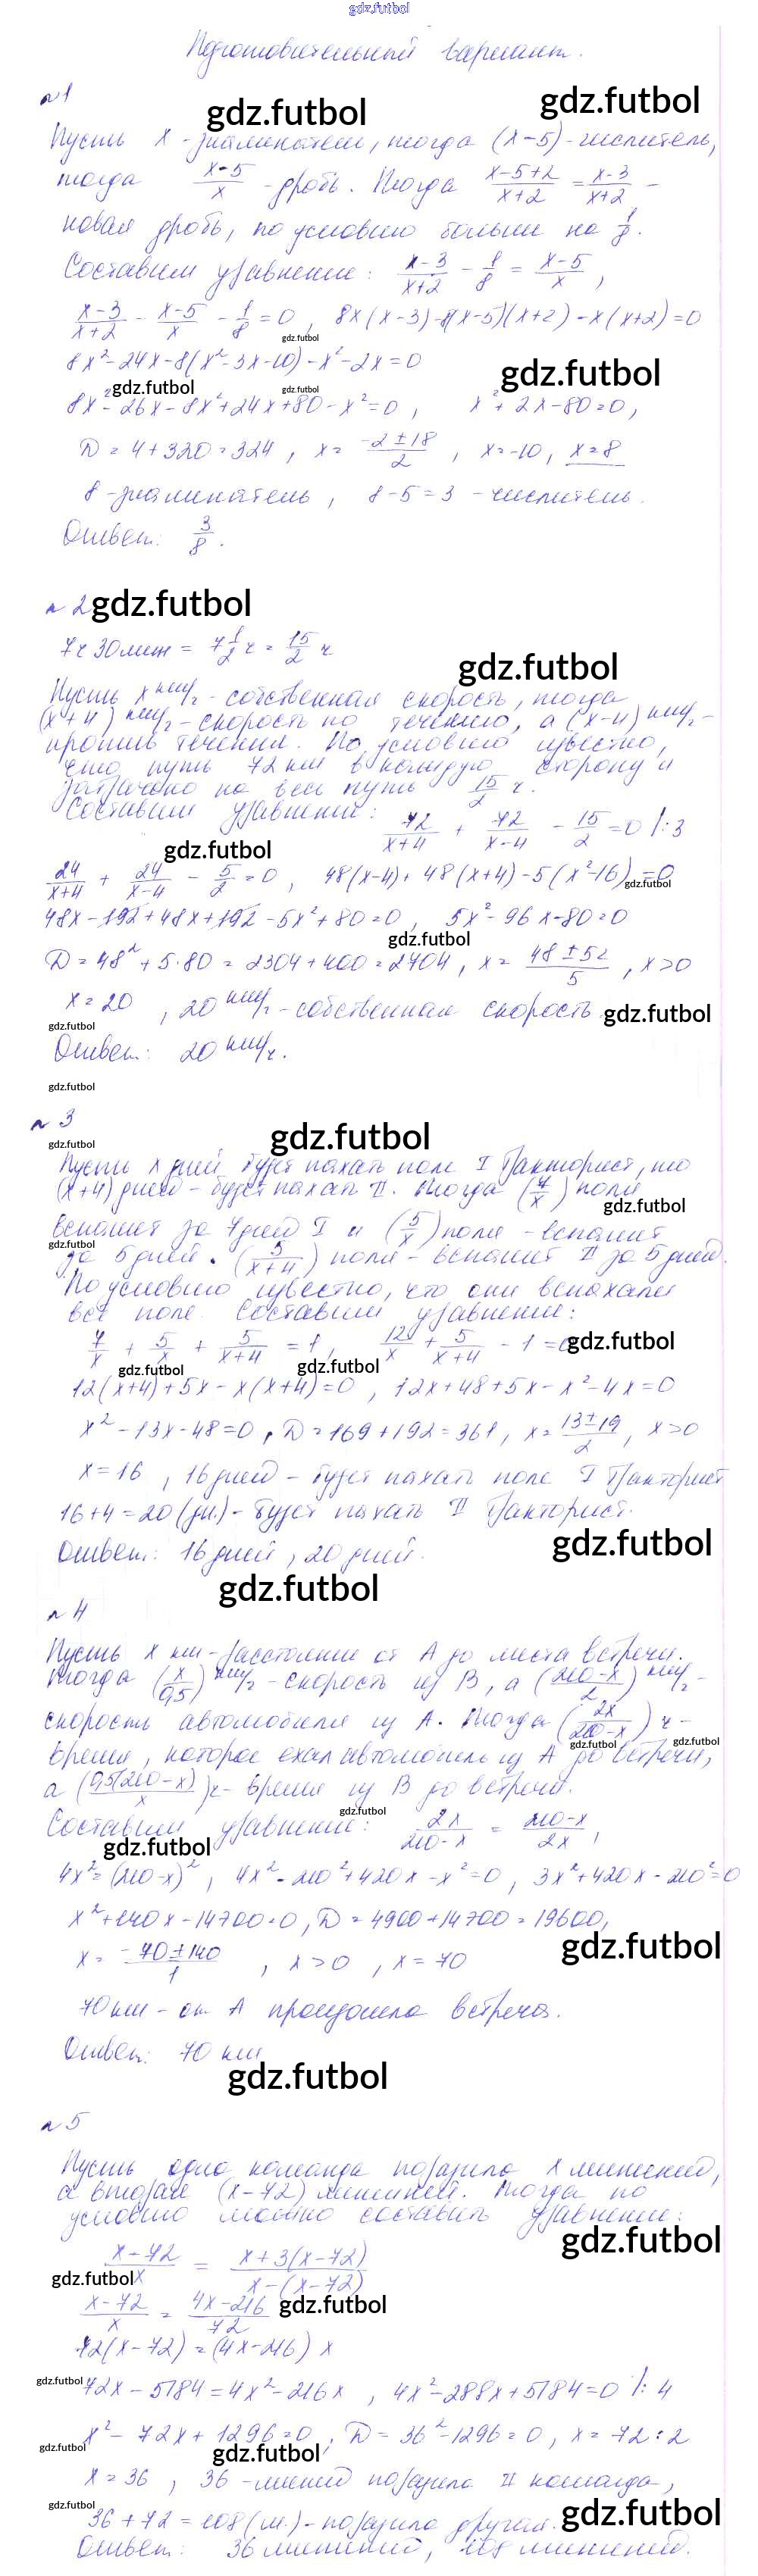 gdz.futbol
Подготовительный вариант.
№1
gdz.futbol gdz.futbol
Пусть x - знаменатель, тогда (x-5) - числитель,
тогда (x-5)/x - дробь. Тогда (x-5+2)/(x+2) = (x-3)/(x+2) -
новая дробь, по условию больше на 1/8.
Составим уравнение: (x-3)/(x+2) - 1/8 = (x-5)/x,
(x-3)/(x+2) - (x-5)/x - 1/8 = 0, 8x(x-3)-8(x-5)(x+2)-x(x+2)=0
gdz.futbol
8x²-24x-8(x²-3x-10)-x²-2x=0
gdz.futbol gdz.futbol gdz.futbol
8x²-26x-8x²+24x+80-x²=0, x²+2x-80=0,
D=4+320=324, x=(-2±18)/2, x=-10, x=8
8-знаменатель, 8-5=3 - числитель.
Ответ: 3/8.
№2 gdz.futbol
7ч 30мин = 7 1/2 ч = 15/2 ч
gdz.futbol
Пусть x км/ч - собственная скорость, тогда
(x+4) км/ч - скорость по течению, а (x-4) км/ч -
против течения. По условию известно,
что путь 72 км в каждую сторону и
затрачено на весь путь 15/2 ч.
Составим уравнение: 72/(x+4) + 72/(x-4) - 15/2 = 0 |:3
gdz.futbol
24/(x+4) + 24/(x-4) - 5/2 = 0, 48(x-4)+48(x+4)-5(x²-16)=0
gdz.futbol
48x-192+48x+192-5x²+80=0, 5x²-96x-80=0
gdz.futbol
D=48²+5·80=2304+400=2704, x=(48±52)/5, x>0
x=20, 20 км/ч - собственная скорость gdz.futbol
gdz.futbol
Ответ: 20 км/ч.
gdz.futbol
№3
gdz.futbol gdz.futbol
Пусть x дней будет пахать поле I тракторист, то
(x+4) дней - будет пахать II. Тогда (7/x) поля
gdz.futbol
вспашет за 7 дней I и (5/x) поля - вспашет
gdz.futbol
за 5 дней. (5/(x+4)) поля - вспашет II за 5 дней.
По условию известно, что они вспахали
всё поле. Составим уравнение:
7/x + 5/x + 5/(x+4) = 1, 12/x + 5/(x+4) - 1 = 0 gdz.futbol
gdz.futbol gdz.futbol
12(x+4)+5x-x(x+4)=0, 12x+48+5x-x²-4x=0
x²-13x-48=0, D=169+192=361, x=(13±19)/2, x>0
x=16, 16 дней - будет пахать поле I тракторист
16+4=20 (дн.) - будет пахать II тракторист.
Ответ: 16 дней, 20 дней. gdz.futbol
gdz.futbol
№4
Пусть x км - расстояние от A до места встречи.
Тогда (x/0,5) км/ч - скорость из B, а ((210-x)/2) км/ч -
скорость автомобиля из A. Тогда (2x/(210-x)) ч -
gdz.futbol gdz.futbol
время, которое ехал автомобиль из A до встречи,
а (0,5(210-x)/x) ч - время из B до встречи.
gdz.futbol
Составим уравнение: 2x/(210-x) = (210-x)/2x,
gdz.futbol
4x²=(210-x)², 4x²-210²+420x-x²=0, 3x²+420x-210²=0
x²+140x-14700=0, D=4900+14700=19600,
gdz.futbol
x=(-70±140)/1, x>0, x=70
70 км - от A произошла встреча.
Ответ: 70 км
gdz.futbol
№5
Пусть одна команда поразила x мишеней,
а вторая (x-72) мишеней. Тогда по
условию можно составить уравнение:
gdz.futbol
(x-72)/x = (x+3(x-72))/(x-(x-72))
gdz.futbol
(x-72)/x = (4x-216)/72 gdz.futbol
72(x-72)=(4x-216)x
gdz.futbol
72x-5184=4x²-216x, 4x²-288x+5184=0 |:4
x²-72x+1296=0, D=36²-1296=0, x=72:2
gdz.futbol gdz.futbol
x=36, 36 - мишеней поразила II команда,
gdz.futbol
36+72=108 (м.) - поразила другая. gdz.futbol
Ответ: 36 мишеней, 108 мишеней.